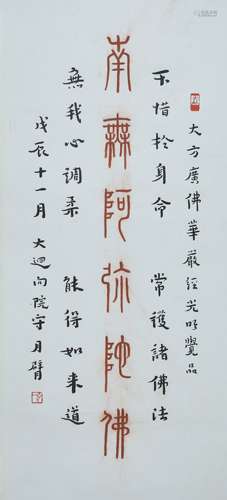 大方廣佛華嚴经光明覺品
不惜於身命 常護諸佛法
南無阿弥陀佛
無我心調柔 能得如来道
戊辰十一月 大迴向院守月臂